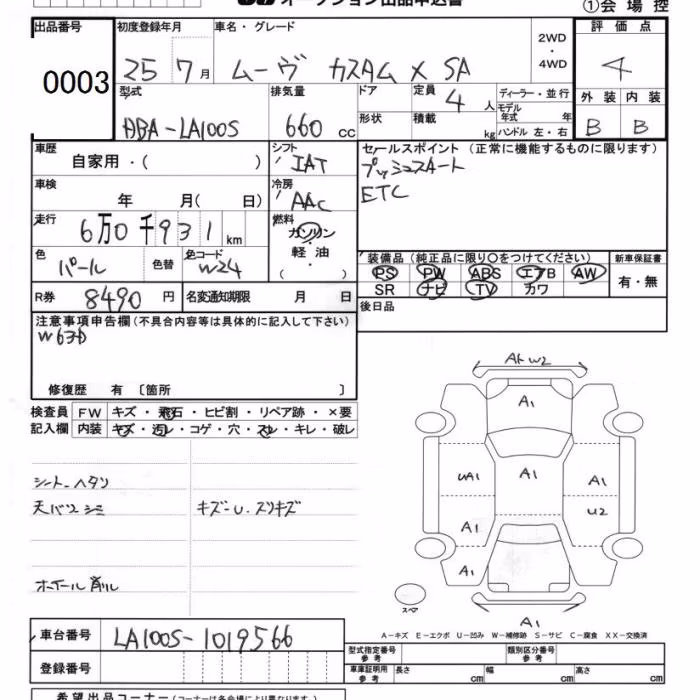 オークション出品申込書
①会場控
出品番号 初度登録年月 車名・グレード 評価点
0003 25 7月 ムーヴ カスタム X SA 2WD・4WD 4
型式 排気量 ドア 定員 ディーラー・並行 外装 内装
ABA-LA100S 660cc 4人 モデル年式 年 B B
形状 積載 kg ハンドル 左・右
車歴 シフト セールスポイント (正常に機能するものに限ります)
自家用・( ) IAT プッシュスタート
車検 冷房 ETC
年 月( 日) AAC
走行 燃料
6万0千931km ガソリン・軽油・( )
色 色替 色コード 装備品(純正品に限り〇をつけてください) 新車保証書
パール W24 PS PW ABS エアB AW 有・無
SR ナビ TV カワ
R券 8490円 名変通知期限 月 日 後日品
注意事項申告欄(不具合内容等は具体的に記入して下さい)
修復歴 有 〔箇所 〕
検査員 FW キズ・飛石・ヒビ割・リペア跡・×要
記入欄 内装 キズ・汚レ・コゲ・穴・スレ・キレ・破レ
シートヘタリ
天バリシミ キズ-U.スリキズ
ホイール削ル
W2
A1
UA1 A1 A1
A1 U2
A1
スペア
A1
A-キズ E-エクボ U-凹み W-補修跡 S-サビ C-腐食 XX-交換済
車台番号 LA100S-1019566
型式指定番号 参考 類別区分番号 参考
登録番号 車庫証明用 参考 長さ cm 幅 cm 高さ cm
希望出品コーナー(コーナーは各会場により異なります。)